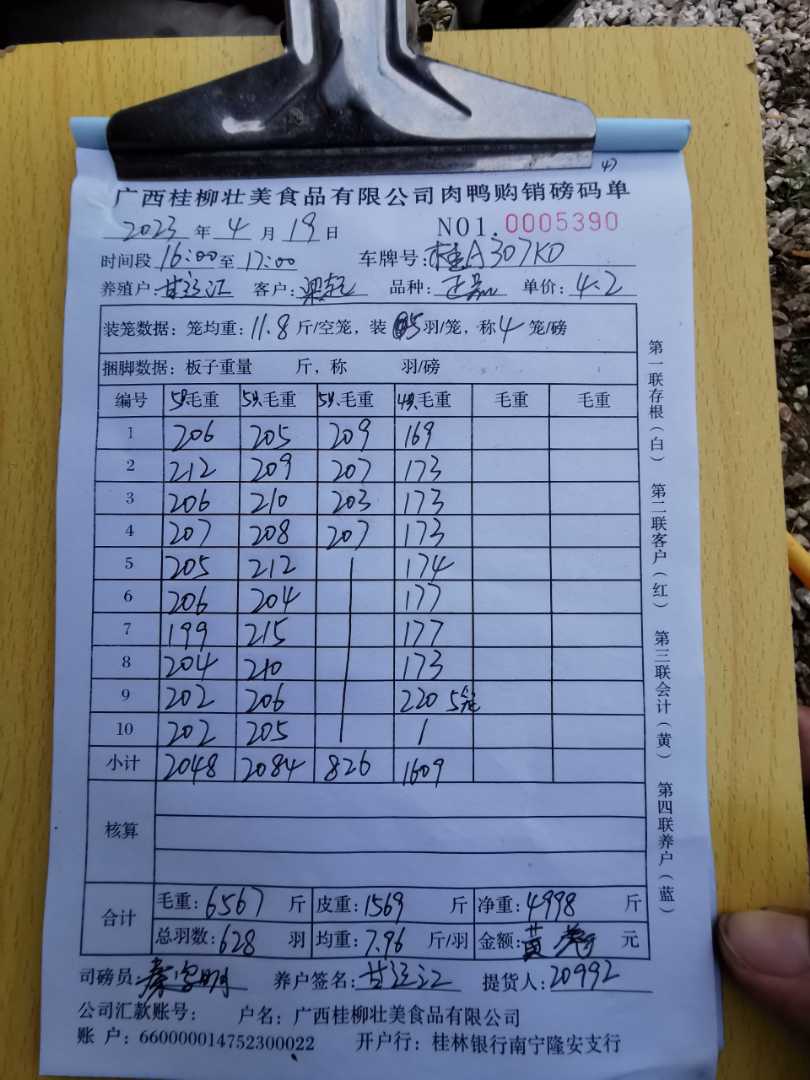 47
广西桂柳壮美食品有限公司肉鸭购销磅码单
2023 年 4 月 19 日 NO1. 0005390
时间段 16:00 至 17:00 车牌号: 桂A307K0
养殖户: 客户: 品种: 单价: 4.2
装笼数据: 笼均重: 11.8 斤/空笼, 装 5 羽/笼, 称 4 笼/磅
捆脚数据: 板子重量 斤, 称 羽/磅
编号 5只毛重 5只毛重 5只毛重 4只毛重 毛重 毛重
1 206 205 209 169
2 212 209 207 173
3 206 210 203 173
4 207 208 207 173
5 205 212 174
6 206 204 177
7 199 215 177
8 204 210 173
9 202 206 220 5笼
10 202 205 1
小计 2048 2084 826 1609
核算
合计 毛重: 6567 斤 皮重: 1569 斤 净重: 4998 斤
总羽数: 628 羽 均重: 7.96 斤/羽 金额: 元
司磅员: 养户签名: 提货人: 20992
公司汇款账号: 户名: 广西桂柳壮美食品有限公司
账 户: 660000014752300022 开户行: 桂林银行南宁隆安支行
第一联存根(白) 第二联客户(红) 第三联会计(黄) 第四联养户(蓝)